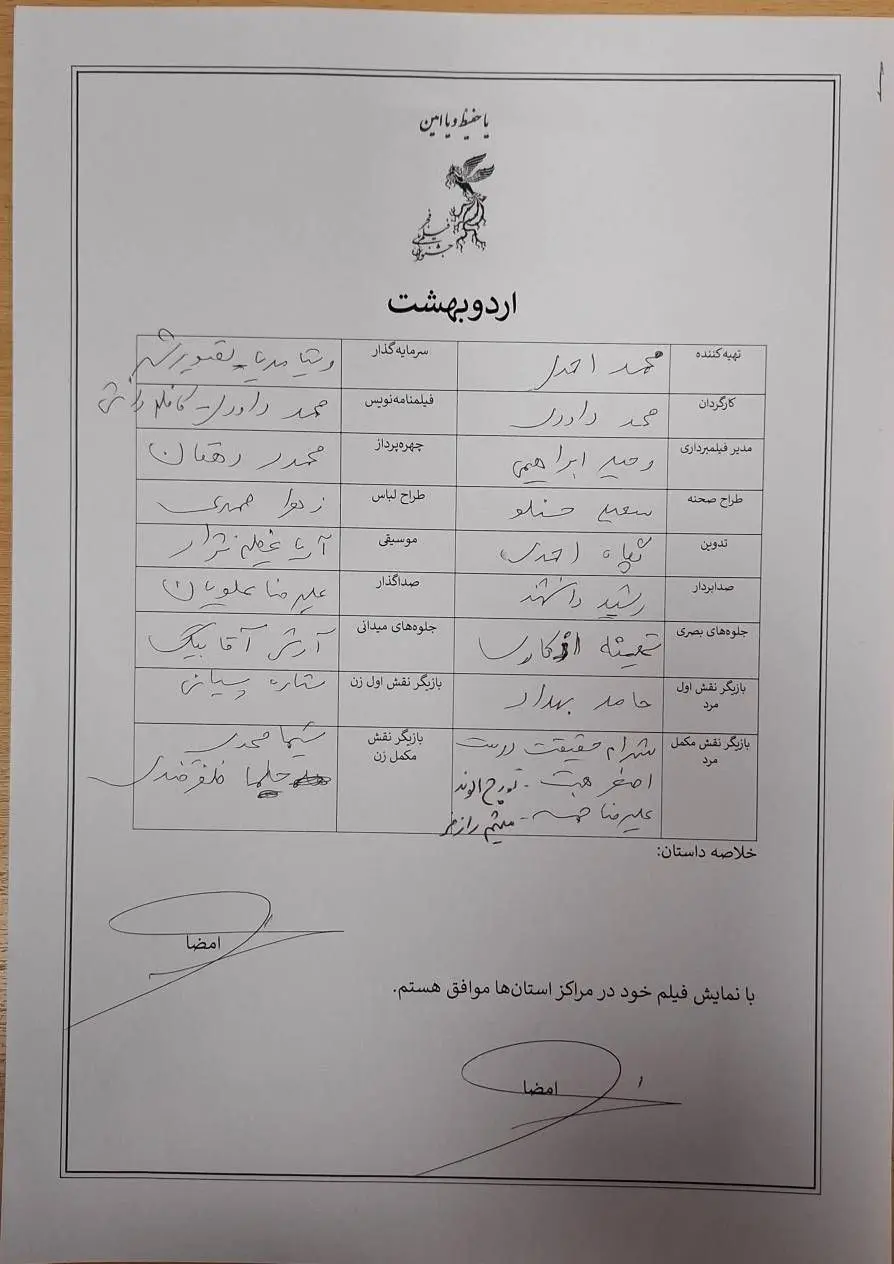 یا حفیظ و یا امین
جشنواره فیلم فجر
اردوبهشت
تهیه‌کننده محمد احمدی سرمایه‌گذار
کارگردان محمد داودی فیلمنامه‌نویس محمد داودی - کاظم دانشی
مدیر فیلمبرداری وحید ابراهیمی چهره‌پرداز محمدرضا دهقان
طراح صحنه سعید حسنلو طراح لباس زهرا صمدی
تدوین احمدی موسیقی آریا عظیمی نژاد
صدابردار رشید دانشمند صداگذار علیرضا علویان
جلوه‌های بصری جلوه‌های میدانی آرش آقا بیک
بازیگر نقش اول مرد حامد بهداد بازیگر نقش اول زن ستاره پسیانی
بازیگر نقش مکمل مرد شهرام حقیقت دوست بازیگر نقش مکمل زن شیما محمدی
اصغر همت - تورج الوند
علیرضا خمسه - میثم رازفر
خلاصه داستان:
امضا
با نمایش فیلم خود در مراکز استان‌ها موافق هستم.
امضا